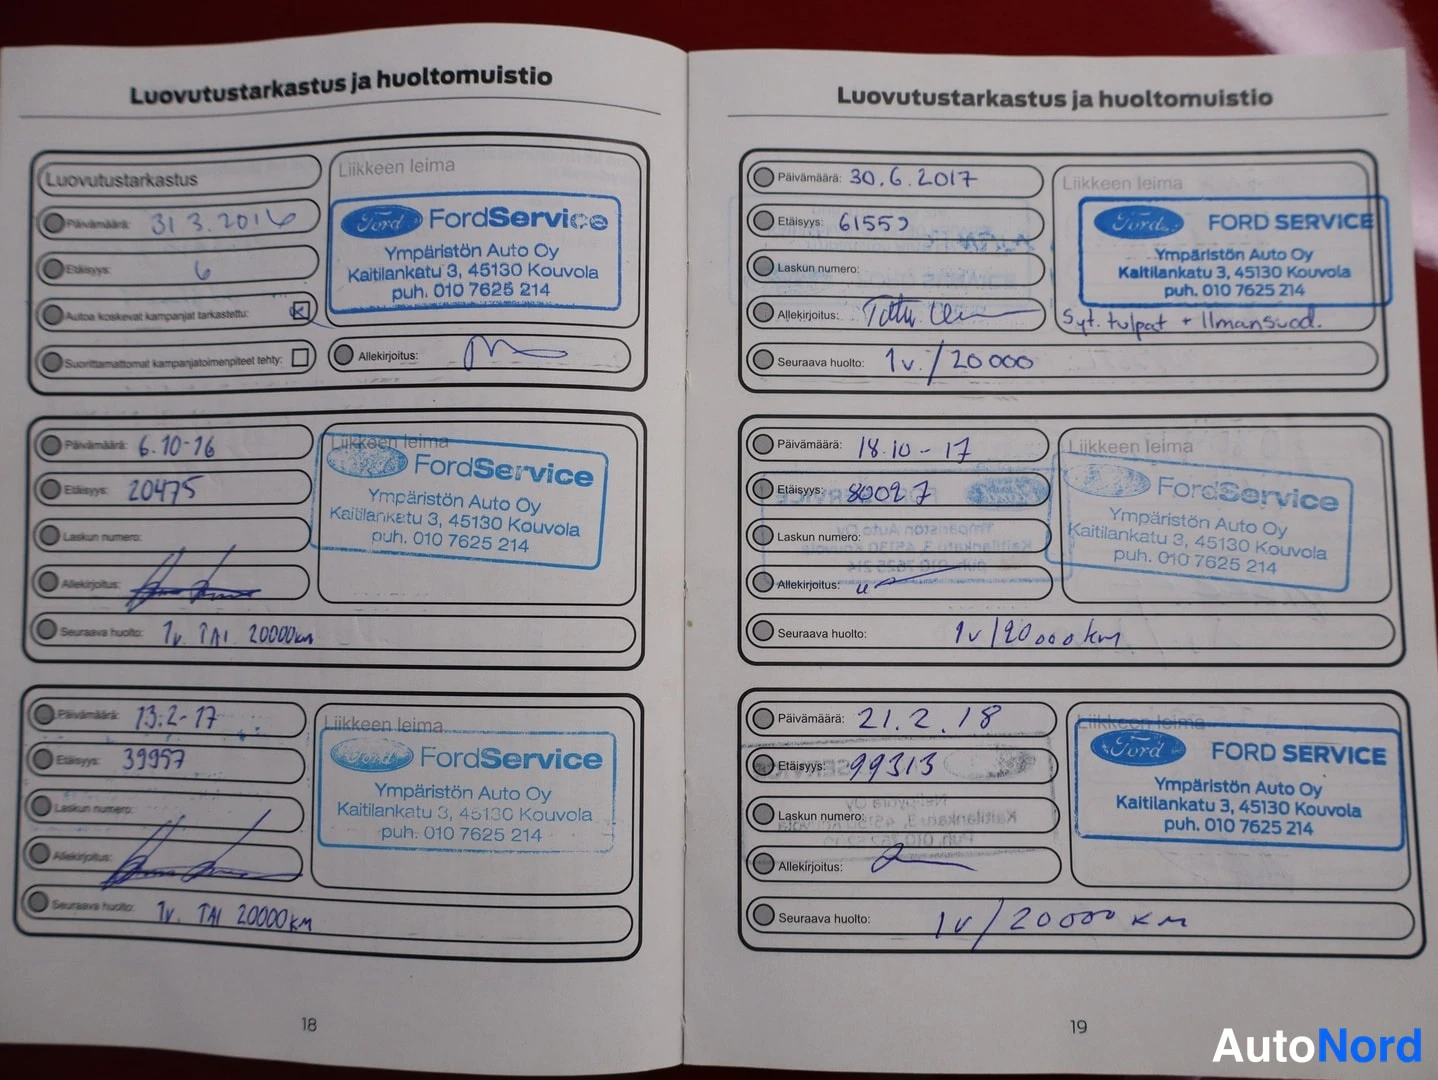 Luovutustarkastus ja huoltomuistio
Luovutustarkastus
Liikkeen leima
Päivämäärä: 31 3.2016
Ford FordService
Ympäristön Auto Oy
Kaitilankatu 3, 45130 Kouvola
puh. 010 7625 214
Etäisyys: 6
Autoa koskevat kampanjat tarkastettu:
Suorittamattomat kampanjatoimenpiteet tehty:
Allekirjoitus:
Päivämäärä: 6.10-16
Liikkeen leima
FordService
Ympäristön Auto Oy
Kaitilankatu 3, 45130 Kouvola
puh. 010 7625 214
Etäisyys: 20475
Laskun numero:
Allekirjoitus:
Seuraava huolto: 1v. TAI 20000km
Päivämäärä: 13.2-17
Liikkeen leima
Ford FordService
Ympäristön Auto Oy
Kaitilankatu 3, 45130 Kouvola
puh. 010 7625 214
Etäisyys: 39957
Laskun numero:
Allekirjoitus:
Seuraava huolto: 1v. TAI 20000KM
18
Luovutustarkastus ja huoltomuistio
Päivämäärä: 30.6.2017
Liikkeen leima
Ford FORD SERVICE
Ympäristön Auto Oy
Kaitilankatu 3, 45130 Kouvola
puh. 010 7625 214
Etäisyys: 61559
Laskun numero:
Allekirjoitus:
Syt. tulpat + Ilmansuod.
Seuraava huolto: 1v./20000
Päivämäärä: 18.10-17
Liikkeen leima
FordService
Ympäristön Auto Oy
Kaitilankatu 3, 45130 Kouvola
puh. 010 7625 214
Etäisyys: 80027
Laskun numero:
Allekirjoitus:
Seuraava huolto: 1v/20000km
Päivämäärä: 21.2.18
Liikkeen leima
Ford FORD SERVICE
Ympäristön Auto Oy
Kaitilankatu 3, 45130 Kouvola
puh. 010 7625 214
Etäisyys: 99313
Laskun numero:
Allekirjoitus:
Seuraava huolto: 1v/20000 KM
19
AutoNord